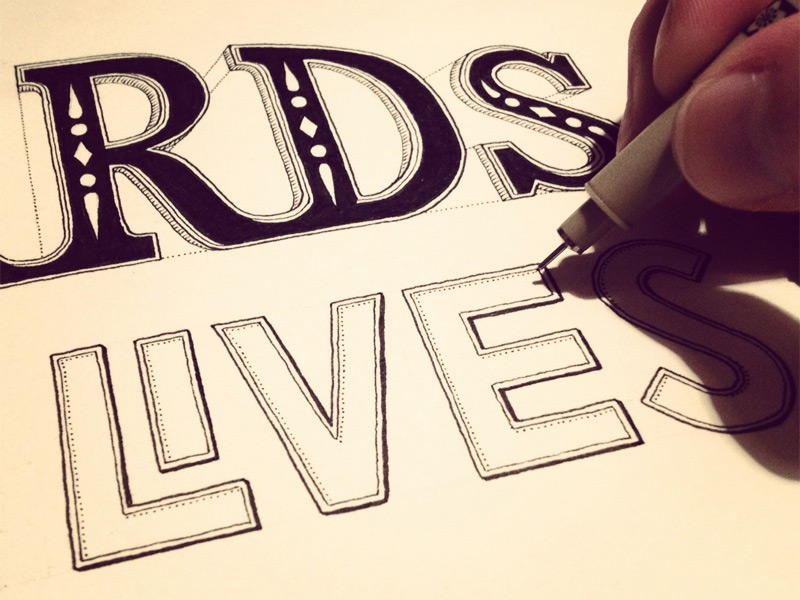 RDS
LIVES